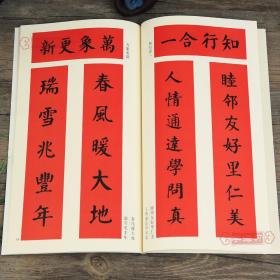 知行合一
睦邻友好里仁美
人情通達學問真
萬象更新
春風暖大地
瑞雪兆豐年